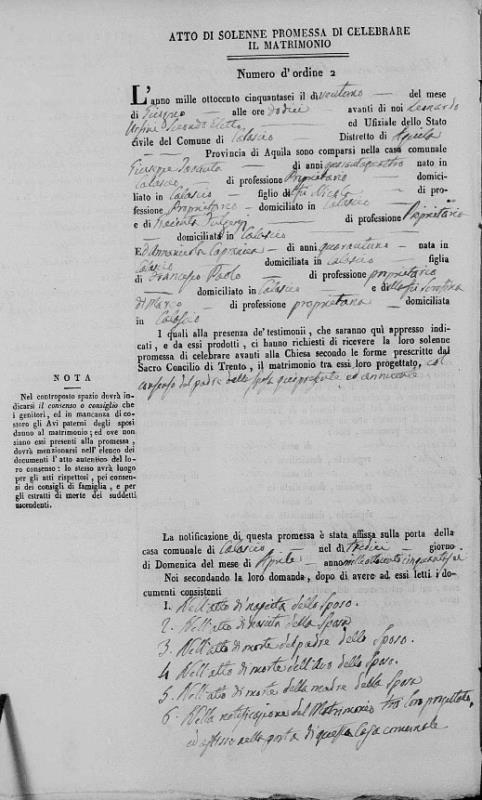 ATTO DI SOLENNE PROMESSA DI CELEBRARE
IL MATRIMONIO
Numero d'ordine 2
L'anno mille ottocento cinquantasei il di ventuno del mese
di Giugno alle ore dodici avanti di noi Leonardo
Secondo Eletto ed Ufiziale dello Stato
civile del Comune di Calascio Distretto di Aquila
Provincia di Aquila sono comparsi nella casa comunale
Giuseppe di anni quarantaquattro nato in
Calascio di professione Proprietario domici-
liato in Calascio figlio di fu Nicola di pro-
fessione Proprietario domiciliato in Calascio
e di Giacinta di professione Proprietaria
domiciliata in Calascio
Ed Annanicola di anni quarantuno nata in
Calascio domiciliata in Calascio figlia
di Francesco Paolo di professione proprietario
domiciliato in Calascio e della fu Serafina
di Marco di professione proprietaria domiciliata
in Calascio
I quali alla presenza de' testimonii, che saranno quì appresso indi-
cati, e da essi prodotti, ci hanno richiesti di ricevere la loro solenne
promessa di celebrare avanti alla Chiesa secondo le forme prescritte dal
Sacro Concilio di Trento, il matrimonio tra essi loro progettato, col
consenso del padre della sposa qui presente ed annuente
NOTA
Nel contropposto spazio dovrà in-
dicarsi il consenso o consiglio che
i genitori, ed in mancanza di co-
storo gli Avi paterni degli sposi
danno al matrimonio; ed ove non
siano essi presenti alla promessa,
dovrà menzionarsi nell'elenco dei
documenti l'atto autentico del lo-
ro consenso: lo stesso avrà luogo
per gli atti rispettori, pei consen-
si dei consigli di famiglia, e per
gli estratti di morte dei suddetti
ascendenti.
La notificazione di questa promessa è stata affissa sulla porta della
casa comunale di Calascio nel di tredici giorno
di Domenica del mese di Aprile anno mille ottocento cinquantasei
Noi secondando la loro domanda, dopo di avere ad essi letti i do-
cumenti consistenti
1. Nell'atto di nascita dello Sposo.
2. Nell'atto di nascita della Sposa
3. Nell'atto di morte del padre dello Sposo.
4. Nell'atto di morte dell'avo dello Sposo.
5. Nell'atto di morte della madre della Sposa
6. Nella notificazione del Matrimonio tra loro progettato,
ed affisso nella porta di questa Casa comunale